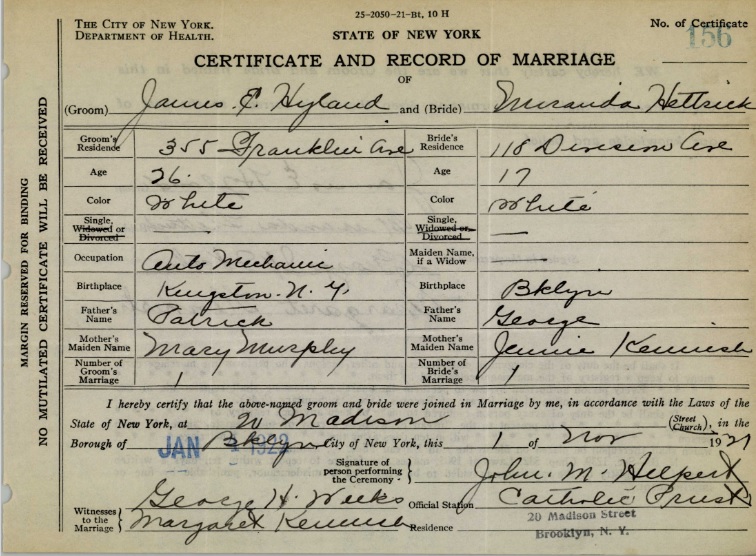 25-2050-21-Bt, 10 H
THE CITY OF NEW YORK.
DEPARTMENT OF HEALTH.
STATE OF NEW YORK
No. of Certificate
156
CERTIFICATE AND RECORD OF MARRIAGE
OF
(Groom) James E. Hyland and (Bride) Emiranda Hettrick
Groom's Residence 355 Franklin Ave Bride's Residence 118 Division Ave
Age 26. Age 17
Color White Color White
Single, Widowed or Divorced — Single, Widowed or Divorced —
Occupation Auto Mechanic Maiden Name, if a Widow —
Birthplace Kingston. N. Y. Birthplace Bklyn
Father's Name Patrick Father's Name George
Mother's Maiden Name Mary Murphy Mother's Maiden Name Jennie Kennish
Number of Groom's Marriage 1 Number of Bride's Marriage 1
I hereby certify that the above-named groom and bride were joined in Marriage by me, in accordance with the Laws of the
State of New York, at 20 Madison (Street Church), in the
Borough of Bklyn City of New York, this 1 of Nov 1921
JAN 1922
Signature of person performing the Ceremony - John. M. Hilpert
Witnesses to the Marriage George H. Weeks Official Station Catholic Priest
Margaret Kennish Residence 20 Madison Street
Brooklyn, N. Y.
MARGIN RESERVED FOR BINDING
NO MUTILATED CERTIFICATE WILL BE RECEIVED